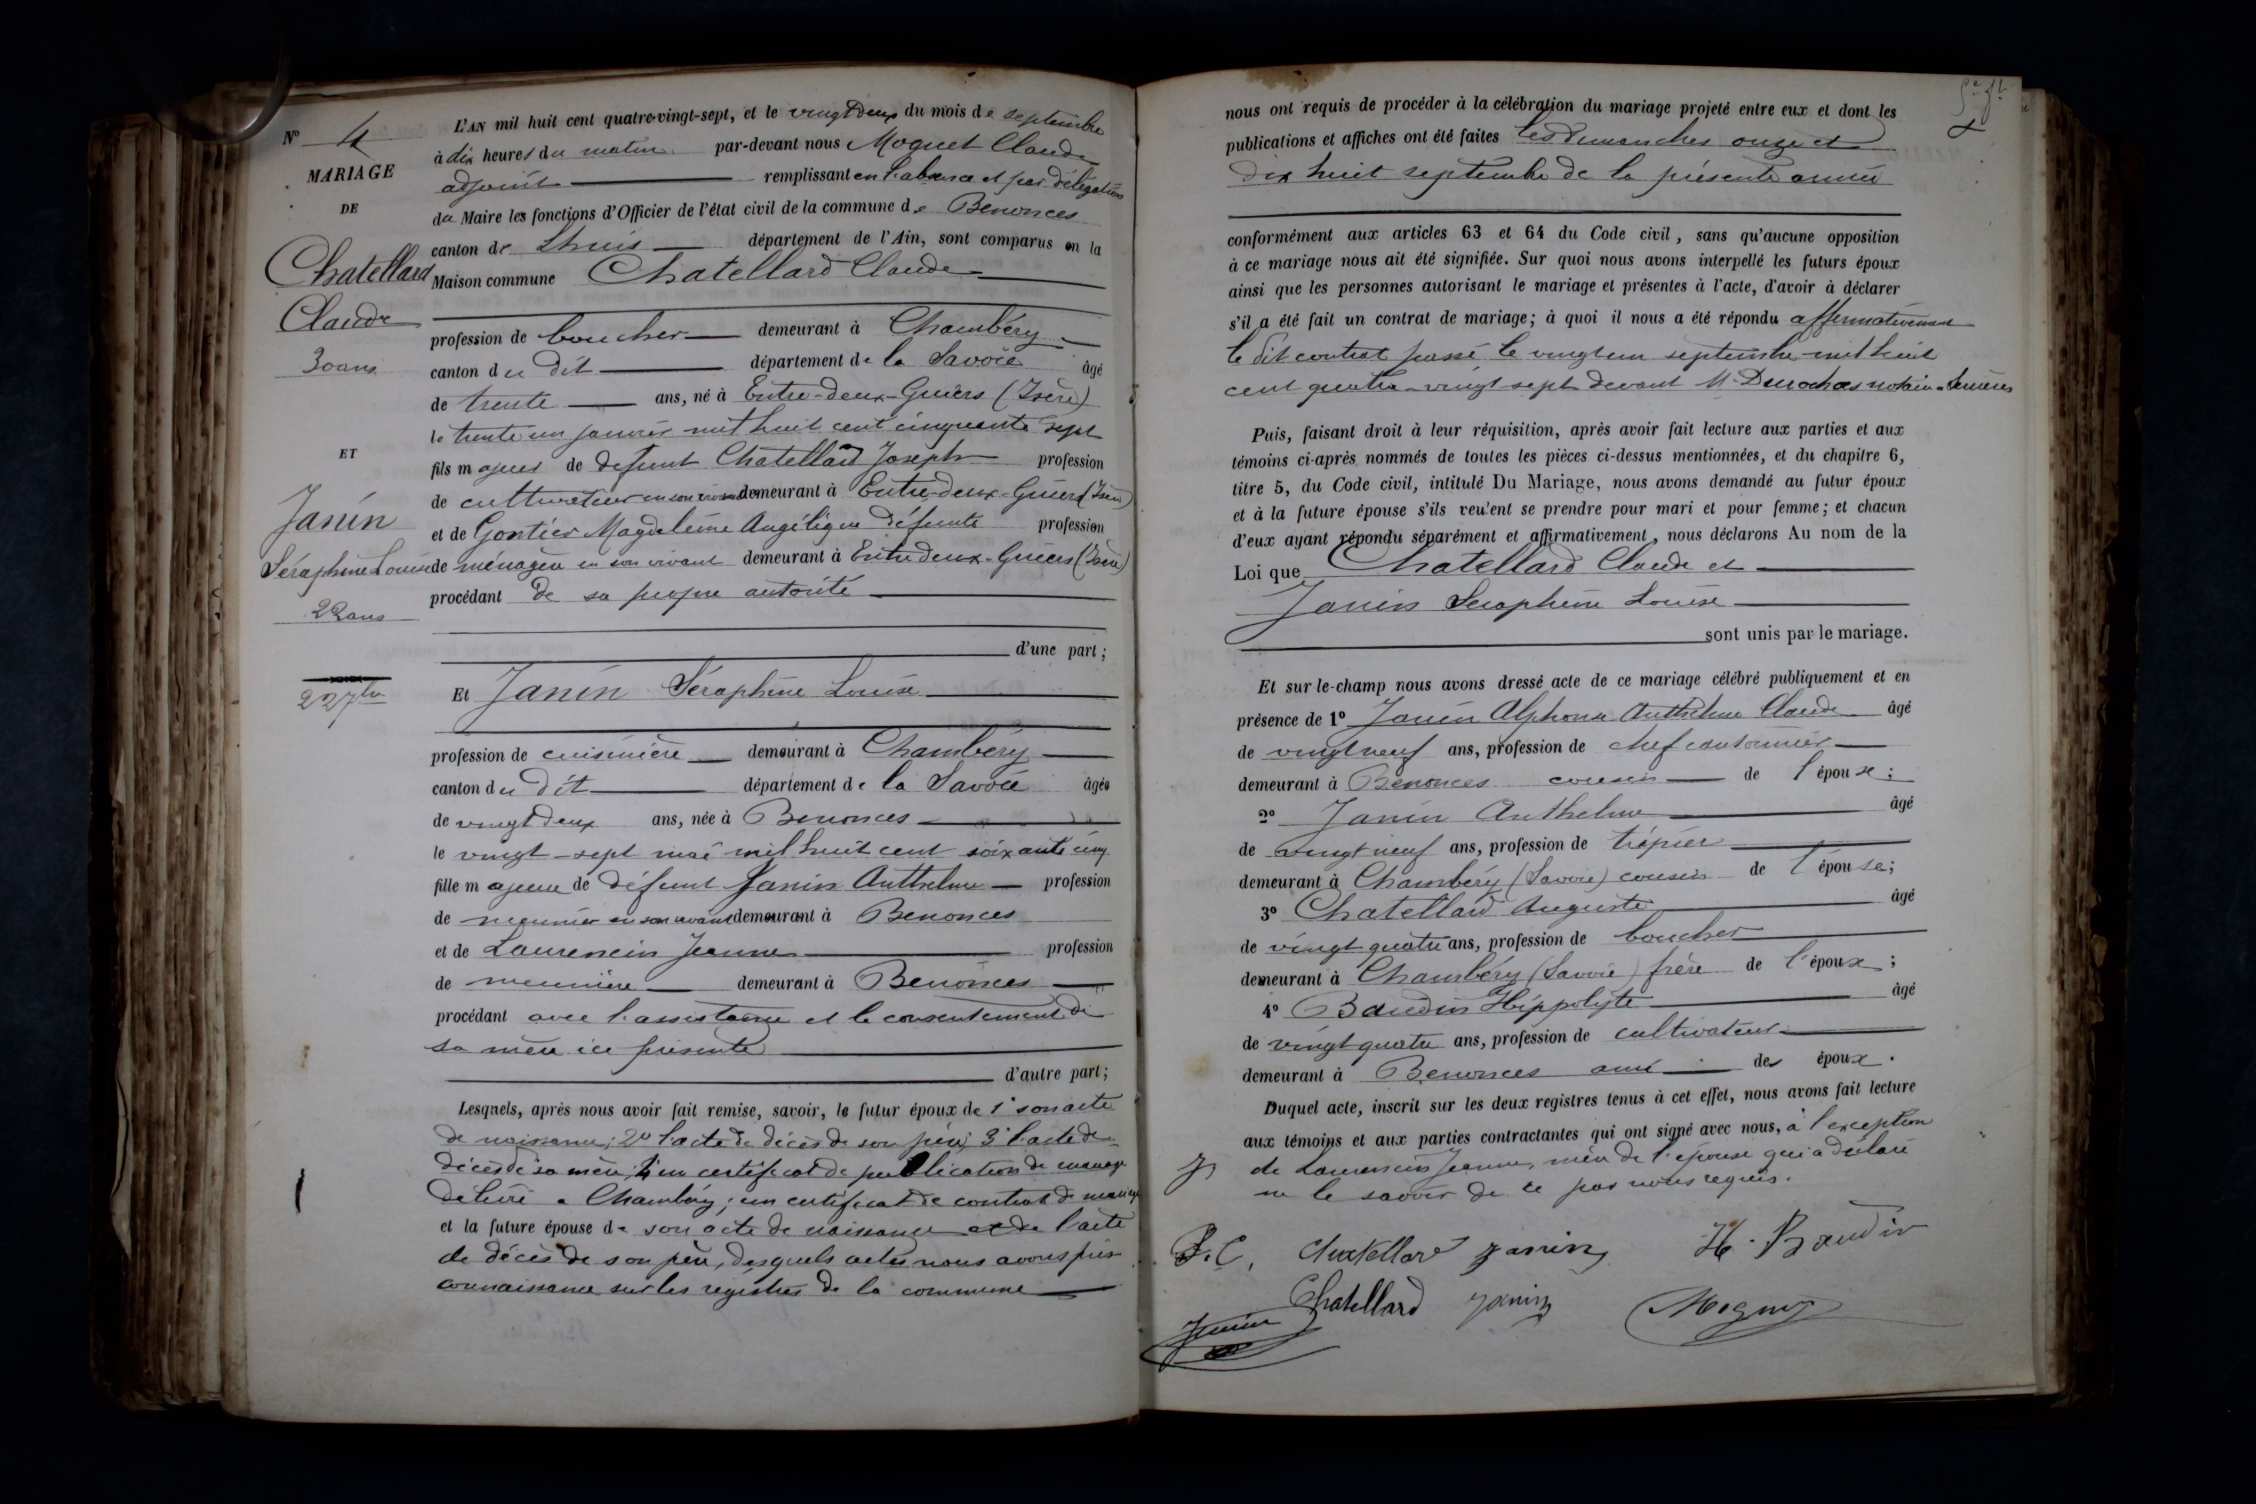 Nº 4
MARIAGE
DE
Chatellard
Claude
30 ans
ET
Janin
Séraphine Louise
22 ans
L'AN mil huit cent quatre-vingt-sept, et le vingt deux du mois de septembre
à dix heures du matin par-devant nous Moguet Claude
adjoint remplissant en l'absence et par délégation
du Maire les fonctions d'Officier de l'état civil de la commune de Benonces
canton de Lhuis département de l'Ain, sont comparus en la
Maison commune Chatellard Claude
profession de boucher demeurant à Chambéry
canton du dit département de la Savoie âgé
de trente ans, né à Entre-deux-Guiers (Isère)
le trente un janvier mil huit cent cinquante sept
fils majeur de defunt Chatellard Joseph profession
de cultivateur en son vivant demeurant à Entre-deux-Guiers (Isère)
et de Gontier Magdeleine Angélique défunte profession
de ménagère en son vivant demeurant à Entre deux-Guiers (Isère)
procédant de sa propre autorité
d'une part ;
Et Janin Séraphine Louise
profession de cuisinière demeurant à Chambéry
canton du dit département de la Savoie âgée
de vingt deux ans, née à Benonces
le vingt-sept mai mil huit cent soixante cinq
fille majeure de défunt Janin Anthelme profession
de meunier en son vivant demeurant à Benonces
et de Laurencin Jeanne profession
de meunière demeurant à Benonces
procédant avec l'assistance et le consentement de
sa mère ici présente
d'autre part ;
Lesquels, après nous avoir fait remise, savoir, le futur époux de 1° son acte
de naissance; 2° l'acte de décès de son père; 3° l'acte de
décès de sa mère; 4° un certificat de publication de mariage
délivré à Chambéry; un certificat de contrat de mariage
et la future épouse de son acte de naissance et de l'acte
de décès de son père, desquels actes nous avons pris
connaissance sur les registres de la commune
nous ont requis de procéder à la célébration du mariage projeté entre eux et dont les
publications et affiches ont été faites les dimanches onze et
dix huit septembre de la présente année
conformément aux articles 63 et 64 du Code civil, sans qu'aucune opposition
à ce mariage nous ait été signifiée. Sur quoi nous avons interpellé les futurs époux
ainsi que les personnes autorisant le mariage et présentes à l'acte, d'avoir à déclarer
s'il a été fait un contrat de mariage; à quoi il nous a été répondu affirmativement
le dit contrat passé le vingt un septembre mil huit
cent quatre-vingt sept devant Me notaire à Serrières
Puis, faisant droit à leur réquisition, après avoir fait lecture aux parties et aux
témoins ci-après nommés de toutes les pièces ci-dessus mentionnées, et du chapitre 6,
titre 5, du Code civil, intitulé Du Mariage, nous avons demandé au futur époux
et à la future épouse s'ils veulent se prendre pour mari et pour femme; et chacun
d'eux ayant répondu séparément et affirmativement, nous déclarons Au nom de la
Loi que Chatellard Claude et
Janin Séraphine Louise
sont unis par le mariage.
Et sur-le-champ nous avons dressé acte de ce mariage célébré publiquement et en
présence de 1º Janin Alphonse Anthelme Claude âgé
de vingt neuf ans, profession de chef cantonnier
demeurant à Benonces cousin de l'épouse;
2º Janin Anthelme âgé
de vingt neuf ans, profession de tripier
demeurant à Chambéry (Savoie) cousin de l'épouse;
3º Chatellard Auguste âgé
de vingt quatre ans, profession de boucher
demeurant à Chambéry (Savoie) frère de l'époux;
4º Baudin Hippolyte âgé
de vingt quatre ans, profession de cultivateur
demeurant à Benonces ami des époux.
Duquel acte, inscrit sur les deux registres tenus à cet effet, nous avons fait lecture
aux témoins et aux parties contractantes qui ont signé avec nous, à l'exception
de Laurencin Jeanne, mère de l'épouse qui a déclaré
ne le savoir de ce par nous requis.
Chatellard Janin H. Baudin
Chatellard Janin Moguet
Janin